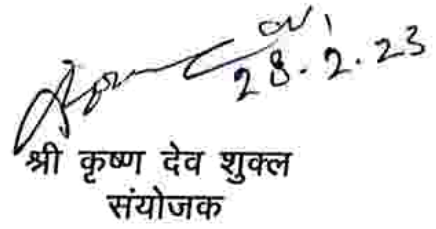 28.2.23
श्री कृष्ण देव शुक्ल
संयोजक